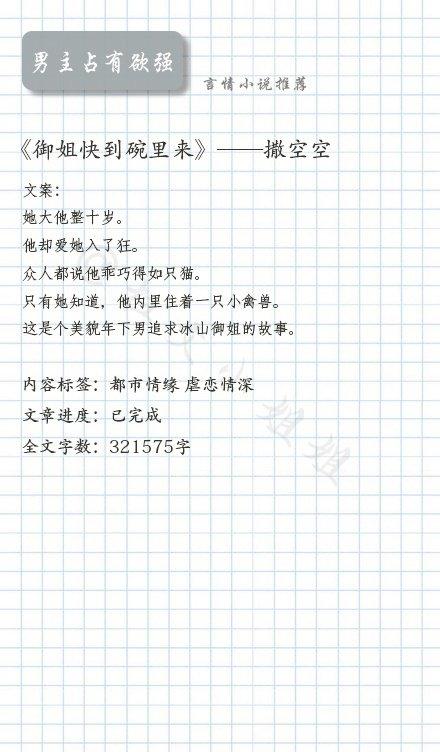 男主占有欲强
言情小说推荐
《御姐快到碗里来》——撒空空
文案：
她大他整十岁。
他却爱她入了狂。
众人都说他乖巧得如只猫。
只有她知道，他内里住着一只小禽兽。
这是个美貌年下男追求冰山御姐的故事。
内容标签：都市情缘 虐恋情深
文章进度：已完成
全文字数：321575字